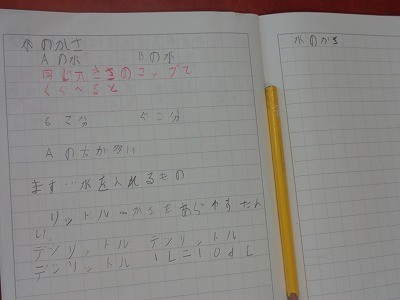 水のかさ
Aの水 Bの水
同じ大きさのコップで
くらべると
6こ分 5こ分
Aの方が多い
ます…水を入れるもの
リットル…かさをあらわすたん
い
デシリットル デシリットル
デシリットル 1L=10dL
水のかさ